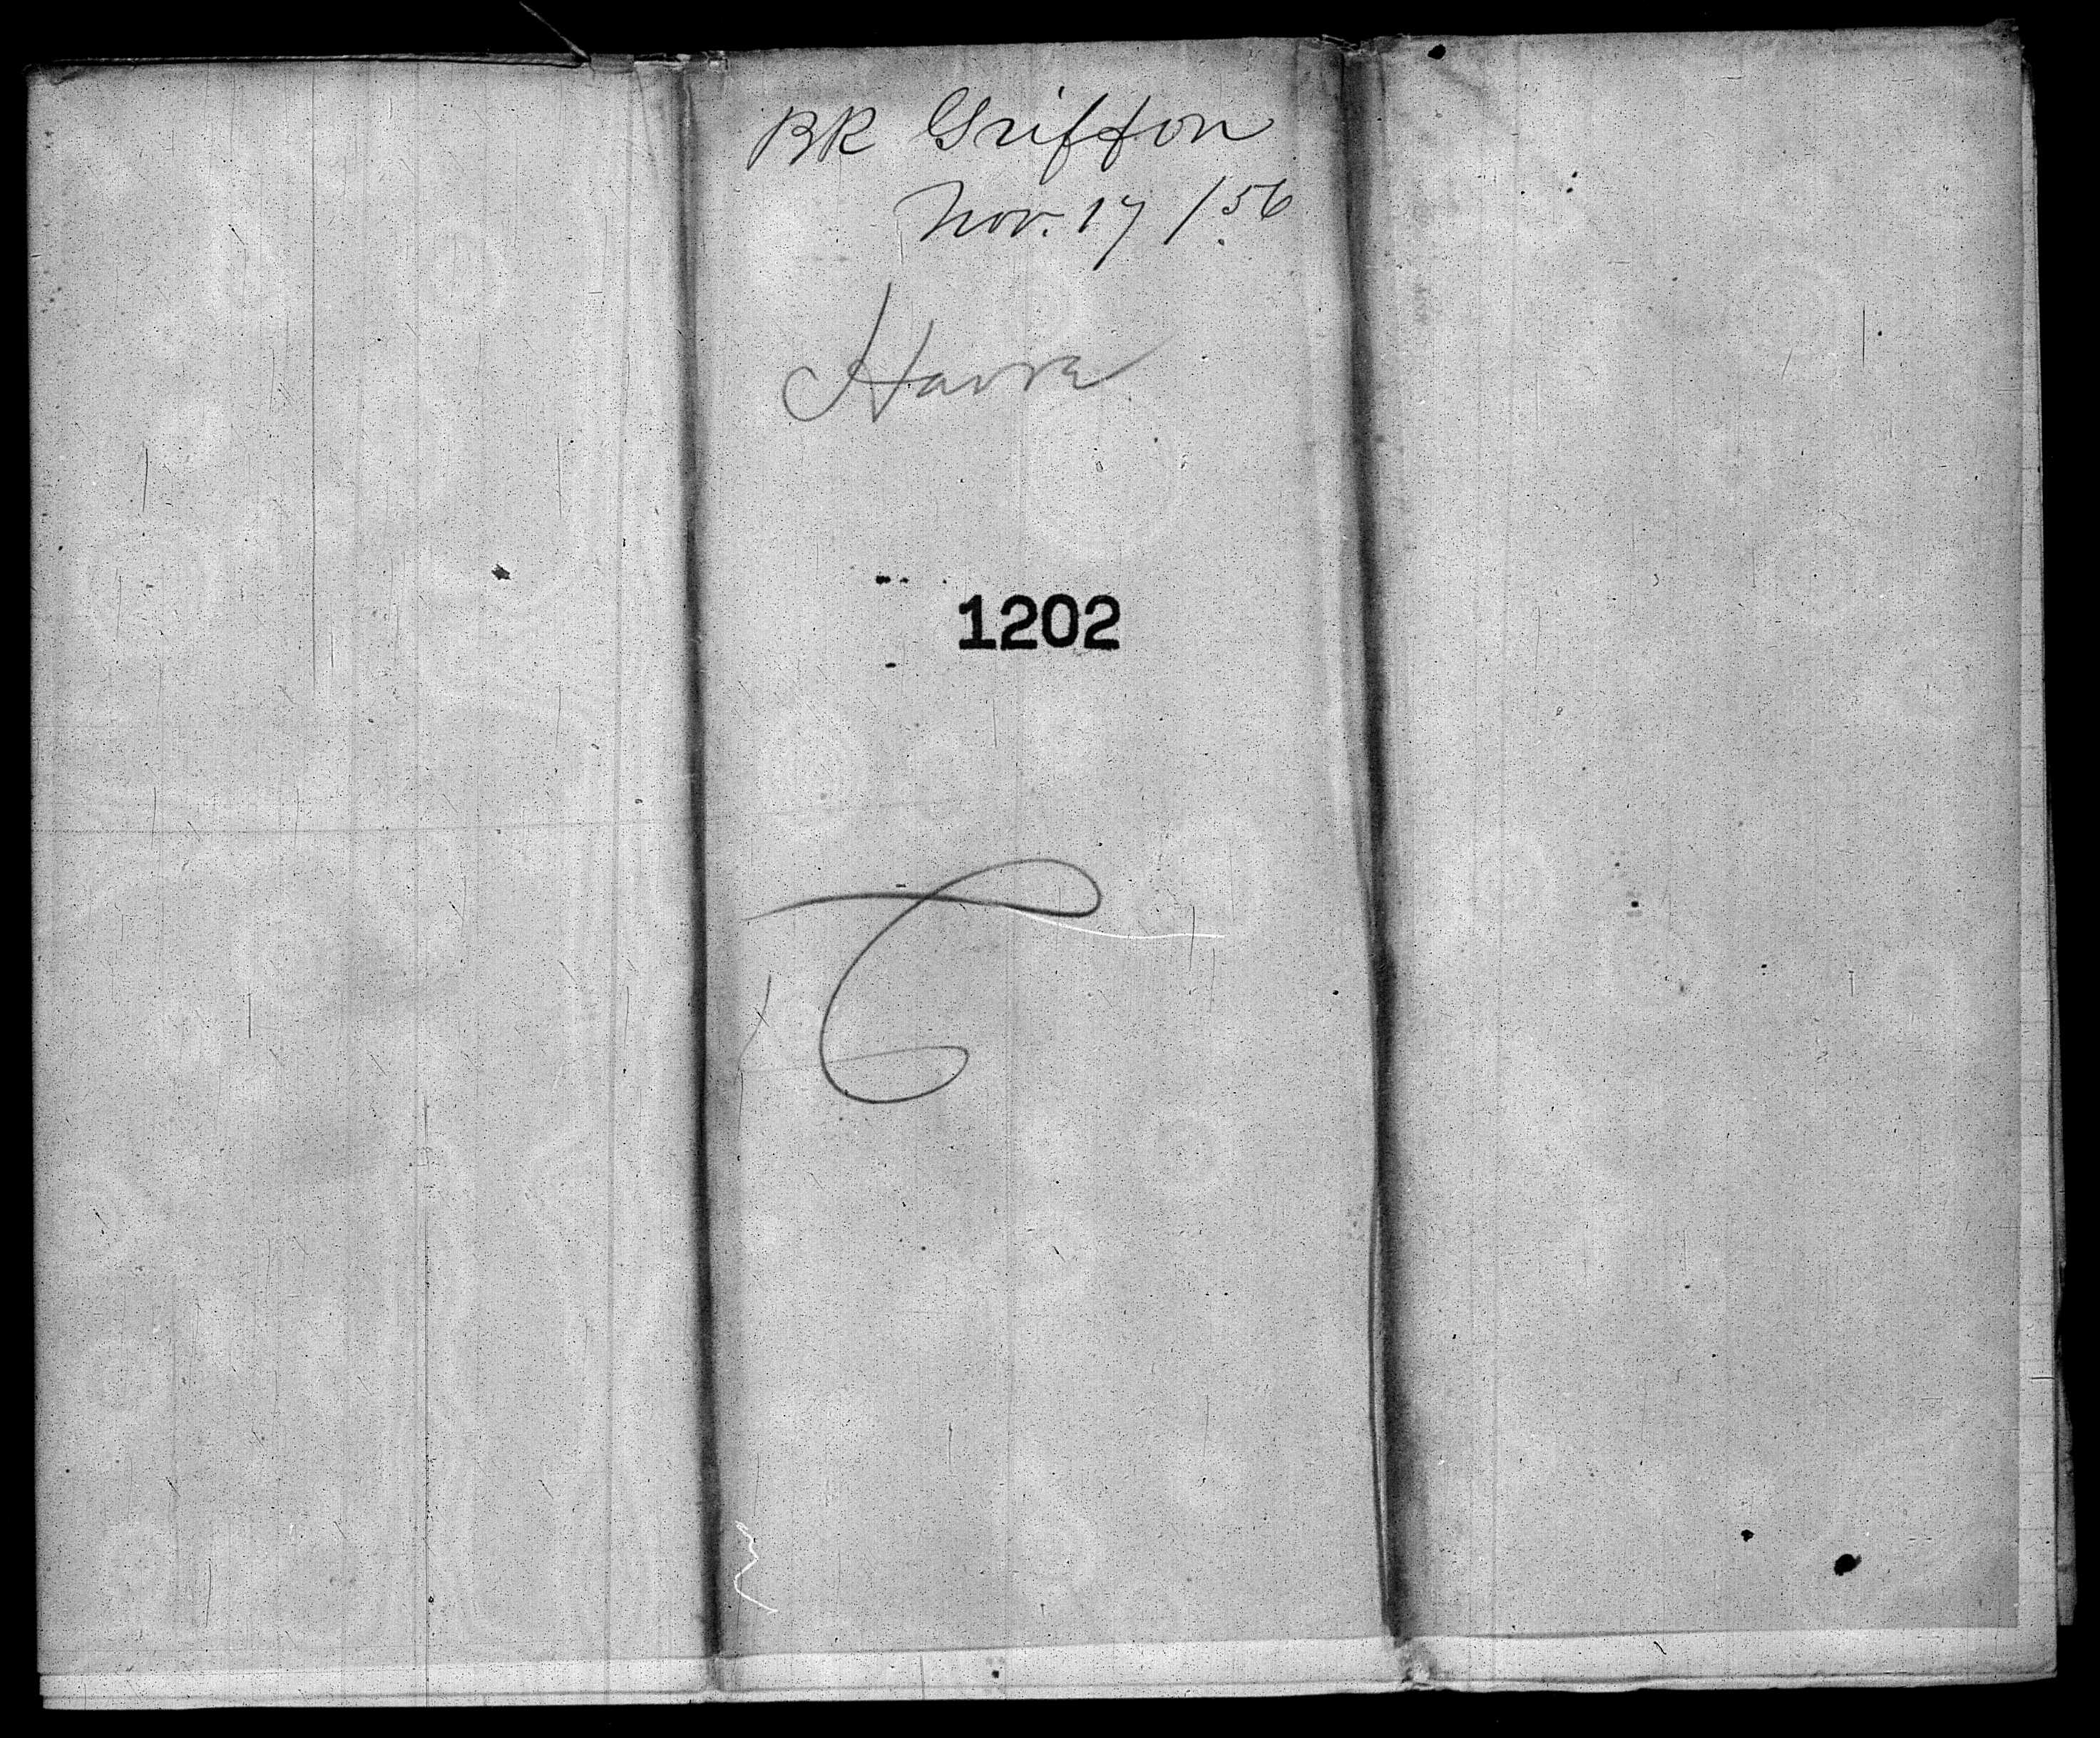 BR Griffon
Nov. 17 /56
Havre
1202